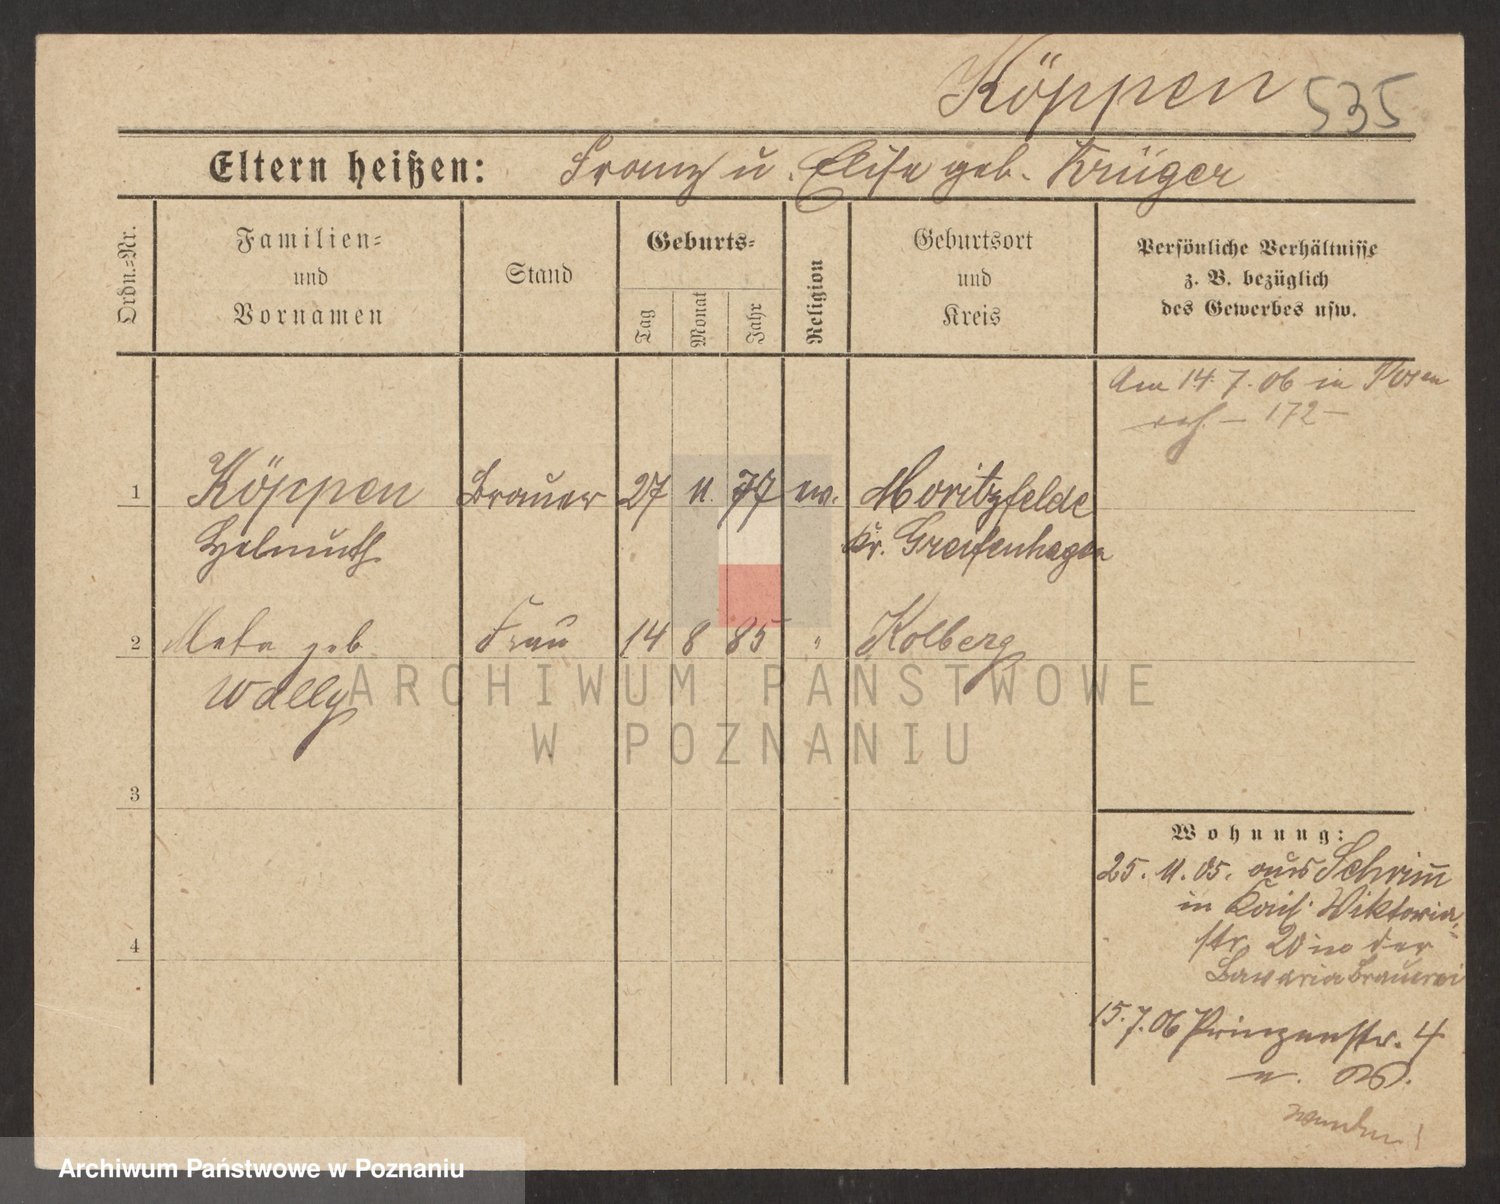 Köppen 535
Eltern heißen: Franz u. Elise geb. Krüger
Ordn.-Nr.
Familien-
und
Vornamen
Stand
Geburts-
Tag
Monat
Jahr
Religion
Geburtsort
und
Kreis
Persönliche Verhältnisse
z. B. bezüglich
des Gewerbes usw.
Am 14.7.06 in Posen
- 172 -
1 Köppen Brauer 27 11. 77 ev. Moritzfelde
Helmuth Kr. Greifenhagen
2 Meta geb Frau 14 8 85 " Kolberg
Wally
3
4
Wohnung:
25. 11. 05. aus Schrimm
in Kais. Wiktoria
str. 20 in der
Bawaria Brauerei
15.7.06 Prinzenstr. 4
wenden!
ARCHIWUM PAŃSTWOWE
W POZNANIU
Archiwum Państwowe w Poznaniu